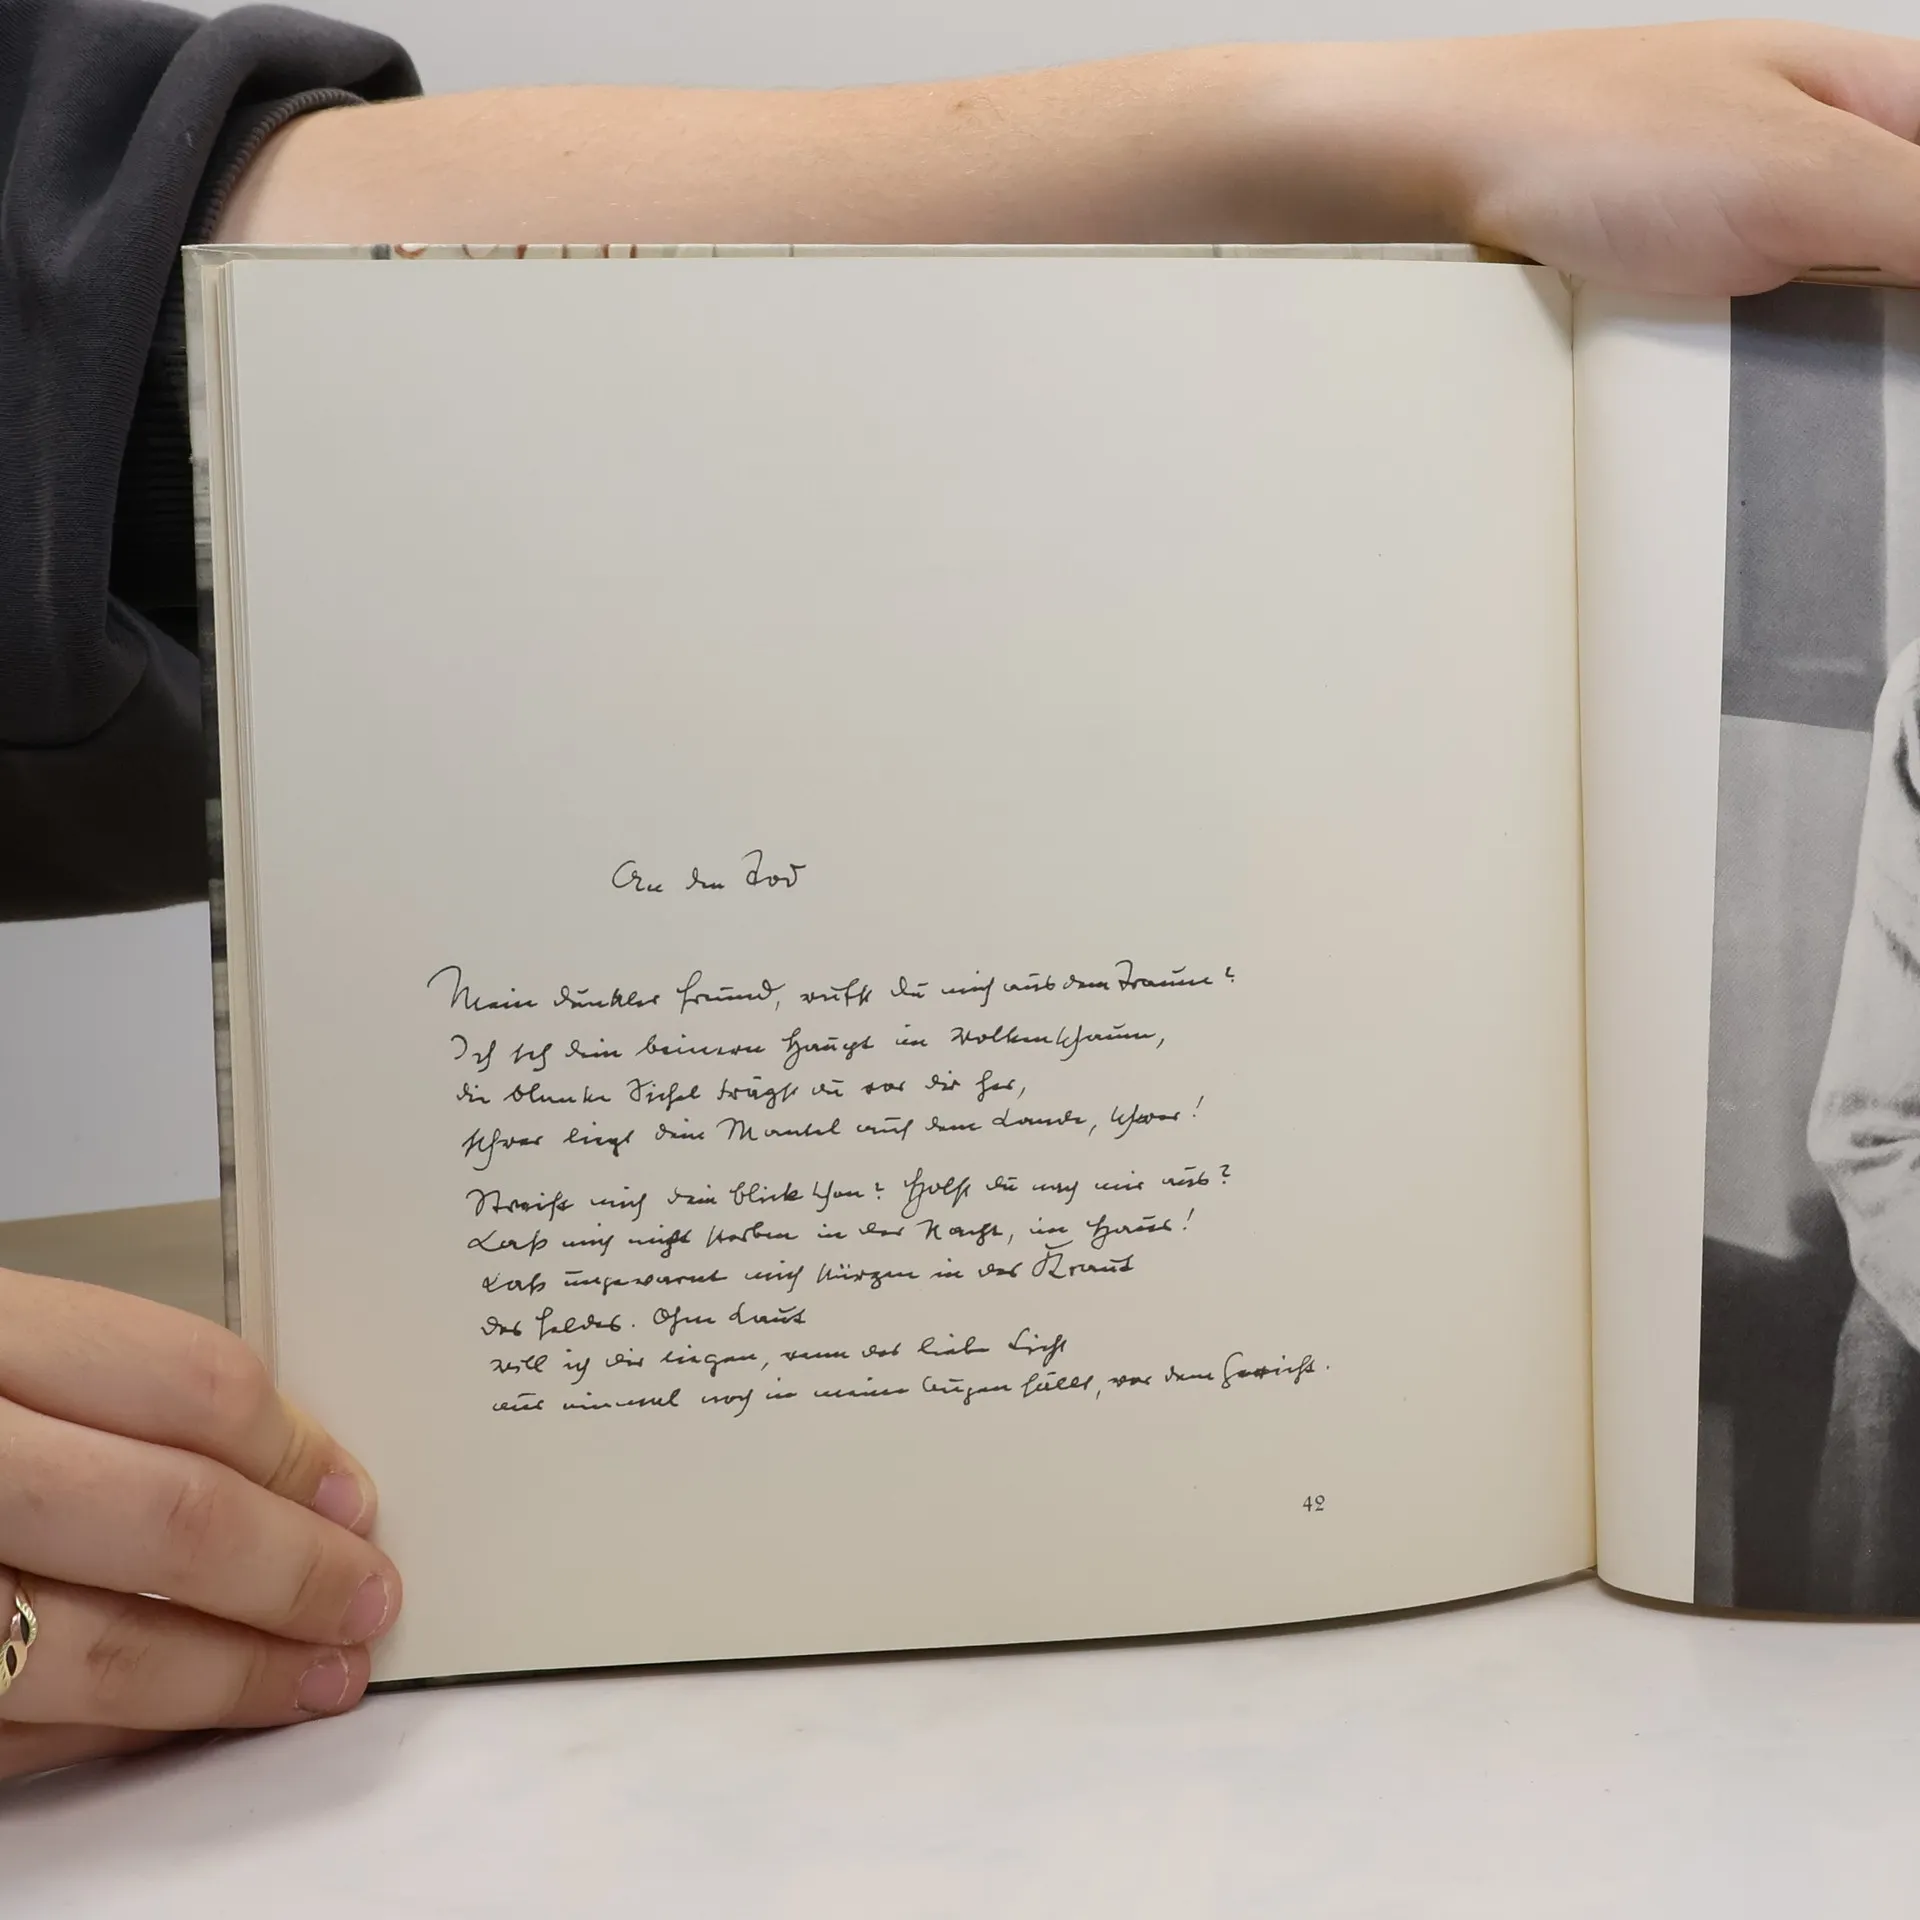 An den Tod
Mein dunkler Freund, rufst du mich aus dem Traume?
Ich seh dein beinern Haupt im Wolkenschaum,
die blanke Sichel trägst du vor dir her,
schwer liegt dein Mantel auf dem Lande, schwer!
Streift mich dein Blick schon? Holst du nach mir aus?
Laß mich nicht sterben in der Nacht, im Haus!
Laß ungewarnt mich stürzen in das Kraut
des Feldes. Ohne Laut
will ich dir liegen, wenn das liebe Licht
nur einmal noch in meine Augen fällt, vor dem Gericht.
42